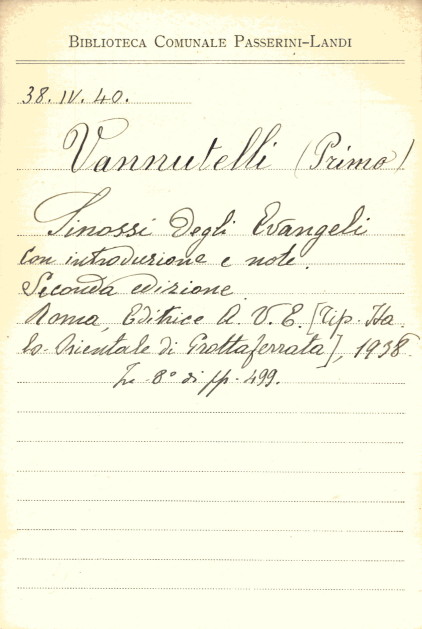 BIBLIOTECA COMUNALE PASSERINI-LANDI
38. IV. 40.
Vannutelli (Primo)
Sinossi degli Evangeli
con introduzione e note.
Seconda edizione.
Roma, Editrice A. V. E. [Tip. Ita-
lo-Orientale di Grottaferrata], 1938
In-8° di pp. 499.